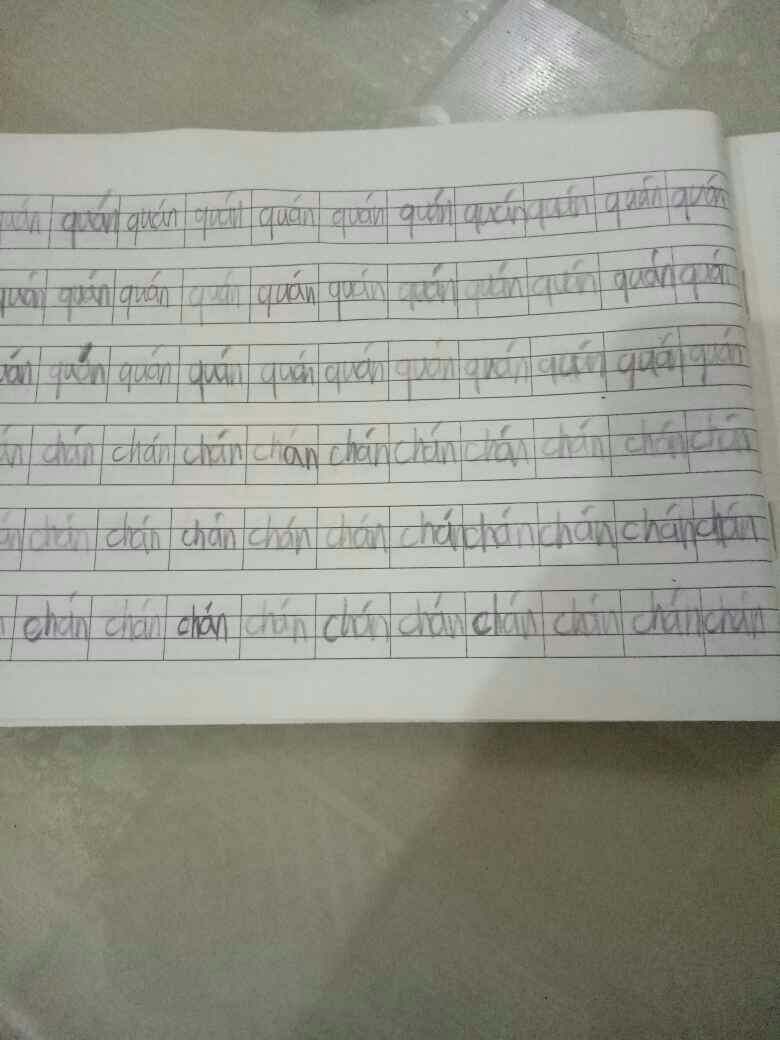 quán quán quán quán quán quán quán quán quán quán quán
quán quán quán quán quán quán quán quán quán quán quán
quán quán quán quán quán quán quán quán quán quán quán
chán chán chán chán chán chán chán chán chán chán
chán chán chán chán chán chán chán chán chán chán
chán chán chán chán chán chán chán chán chán chán